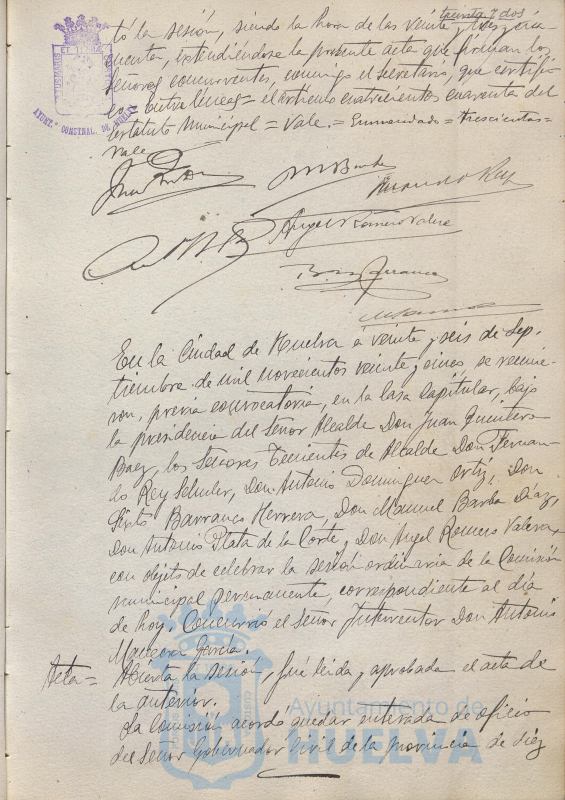 treinta y dos
tó la sesión, siendo la hora de las veinte y tres y cin-
cuenta, extendiéndose la presente acta que firman los
Señores concurrentes, conmigo el secretario, que certifi-
co = entre líneas = el artículo cuatrocientos cuarenta del
Estatuto Municipal = Vale. = Enmendado = Trescientas =
Vale
AYUNT.º CONSTNAL. DE HUELVA
M Barba
Fernando Rey
Angel Romero Valera
B Barranco
En la Ciudad de Huelva á veinte y seis de Sep-
tiembre de mil novecientos veinte y cinco, se reunie-
ron, previa convocatoria, en la Casa Capitular, bajo
la presidencia del Señor Alcalde Don Juan Quintero
Baez, los Señores Tenientes de Alcalde Don Fernan-
do Rey Schuler, Don Antonio Dominguez Ortiz, Don
Sixto Barranco Herrera, Don Manuel Barba Díaz,
Don Antonio Plata de la Corte y Don Angel Romero Valera,
con objeto de celebrar la sesión ordinaria de la Comisión
municipal permanente, correspondiente al día
de hoy. Concurrió el Señor Interventor Don Antonio
García.
Acta = Abierta la sesión, fué leída y aprobada el acta de
la anterior.
La Comisión acordó quedar enterada de oficio
del Señor Gobernador Civil de la Provincia de diez
Ayuntamiento de
HUELVA